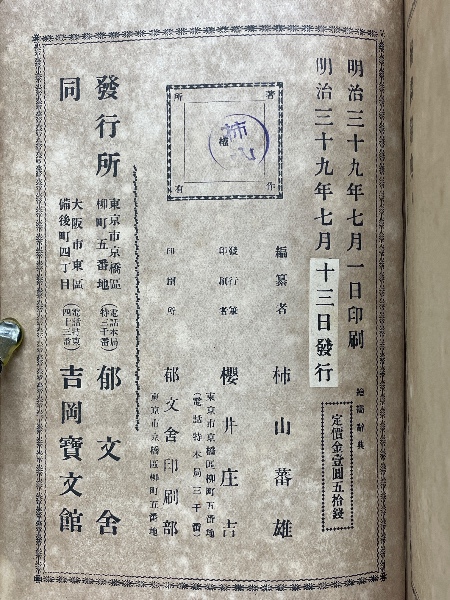 明治三十九年七月一日印刷
明治三十九年七月十三日發行
定價金壹圓五拾錢
著作
權
所有
柿
編纂者 柿山蕃雄
發行兼印刷者 櫻井庄吉
東京市京橋區柳町五番地
(電話特本局三千番)
印刷所 郁文舍印刷部
東京市京橋區柳町五番地
發行所 東京市京橋區柳町五番地 (電話本局特三千番) 郁文舍
同 大阪市東區備後町四丁目 (電話特東四十三番) 吉岡寶文館